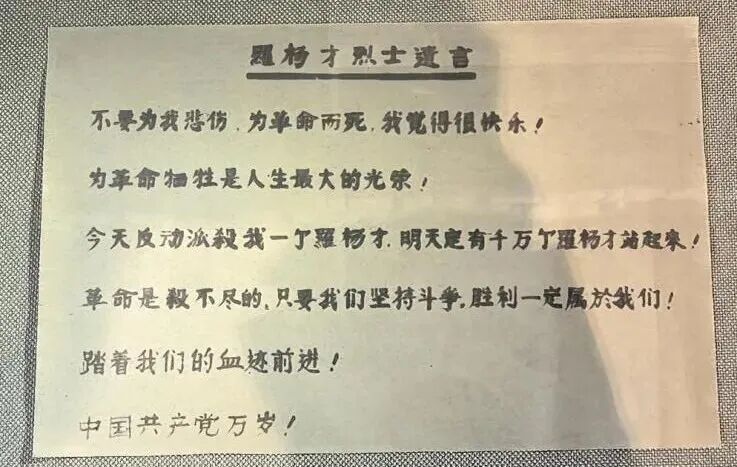 羅杨才烈士遺言
不要为我悲伤，为革命而死，我覚得很快乐！
为革命牺牲是人生最大的光荣！
今天反动派殺我一个羅杨才，明天定有千万个羅杨才站起来！
革命是殺不尽的，只要我们坚持斗争，胜利一定属於我们！
踏着我们的血迹前进！
中国共产党万岁！